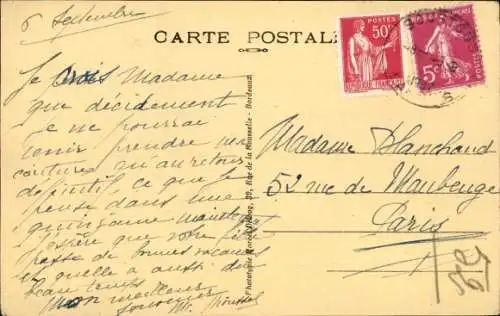 6 Septembre
CARTE POSTALE
POSTES
50c
REPUBLIQUE FRANÇAISE
5c
Je crois Madame
que décidement
je ne pourrai
venir prendre mes
coutures m'au retour
définitif, ce que je
pense dans une
quinzaine maintenant
J'espère que votre
passe de bonnes vacances
et qu'elle a aussi du
beau temps
Mon meilleur
souvenir
Phototypie Marcel Delboy, 39, Rue de la Rousselle - Bordeaux
Madame Blanchard
52 rue de Maubeuge
Paris